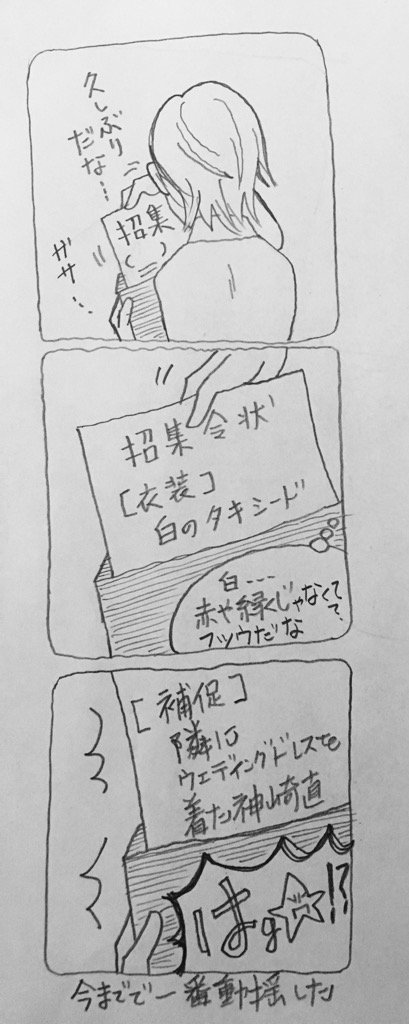 久しぶり
だな…
招集
ガサ…
招集令状
[衣装]
白のタキシード
白---
赤や緑くじゃなくて
フツウだな
[補促]
隣に
ウェディングドレスを
着た神崎直
はぁ!?
今までで一番動揺した